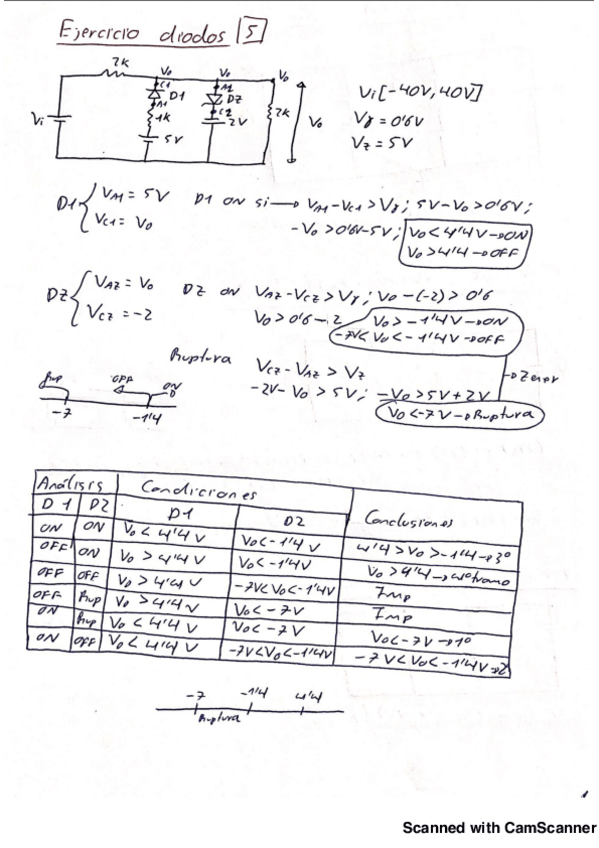 Ejercicio diodos 5
2K Vo Vo Vo
C1 D1 A1 A2 DZ C2
1K 2V 2K Vo
Vi 5V
Vi [-40V, 40V]
Vγ = 0'6V
Vz = 5V
D1 { VA1 = 5V D1 ON si → VA1 - VC1 > Vγ ; 5V - Vo > 0'6V ;
VC1 = Vo - Vo > 0'6V - 5V ; Vo < 4'4V → ON
Vo > 4'4 → OFF
DZ { VAZ = Vo DZ ON VAZ - VCZ > Vγ ; Vo - (-2) > 0'6
VCZ = -2 Vo > 0'6 - 2 Vo > -1'4V → ON
-7V < Vo < -1'4V → OFF
Ruptura VCZ - VAZ > Vz → Zener
Rup OFF ON -2V - Vo > 5V ; -Vo > 5V + 2V
-7 -1'4 Vo < -7V → Ruptura
Análisis Condiciones
D1 D2 D1 D2 Conclusiones
ON ON Vo < 4'4 V Vo < -1'4 V 4'4 > Vo > -1'4 → 3º
OFF ON Vo > 4'4 V Vo < -1'4 V Vo > 4'4 → 4º tramo
OFF OFF Vo > 4'4 V -7V < Vo < -1'4V Imp
OFF Rup Vo > 4'4 V Vo < -7V Imp
ON Rup Vo < 4'4 V Vo < -7V Vo < -7V → 1º
ON OFF Vo < 4'4 V -7V < Vo < -1'4V -7V < Vo < -1'4V → 2
-7 -1'4 4'4
Ruptura
Scanned with CamScanner